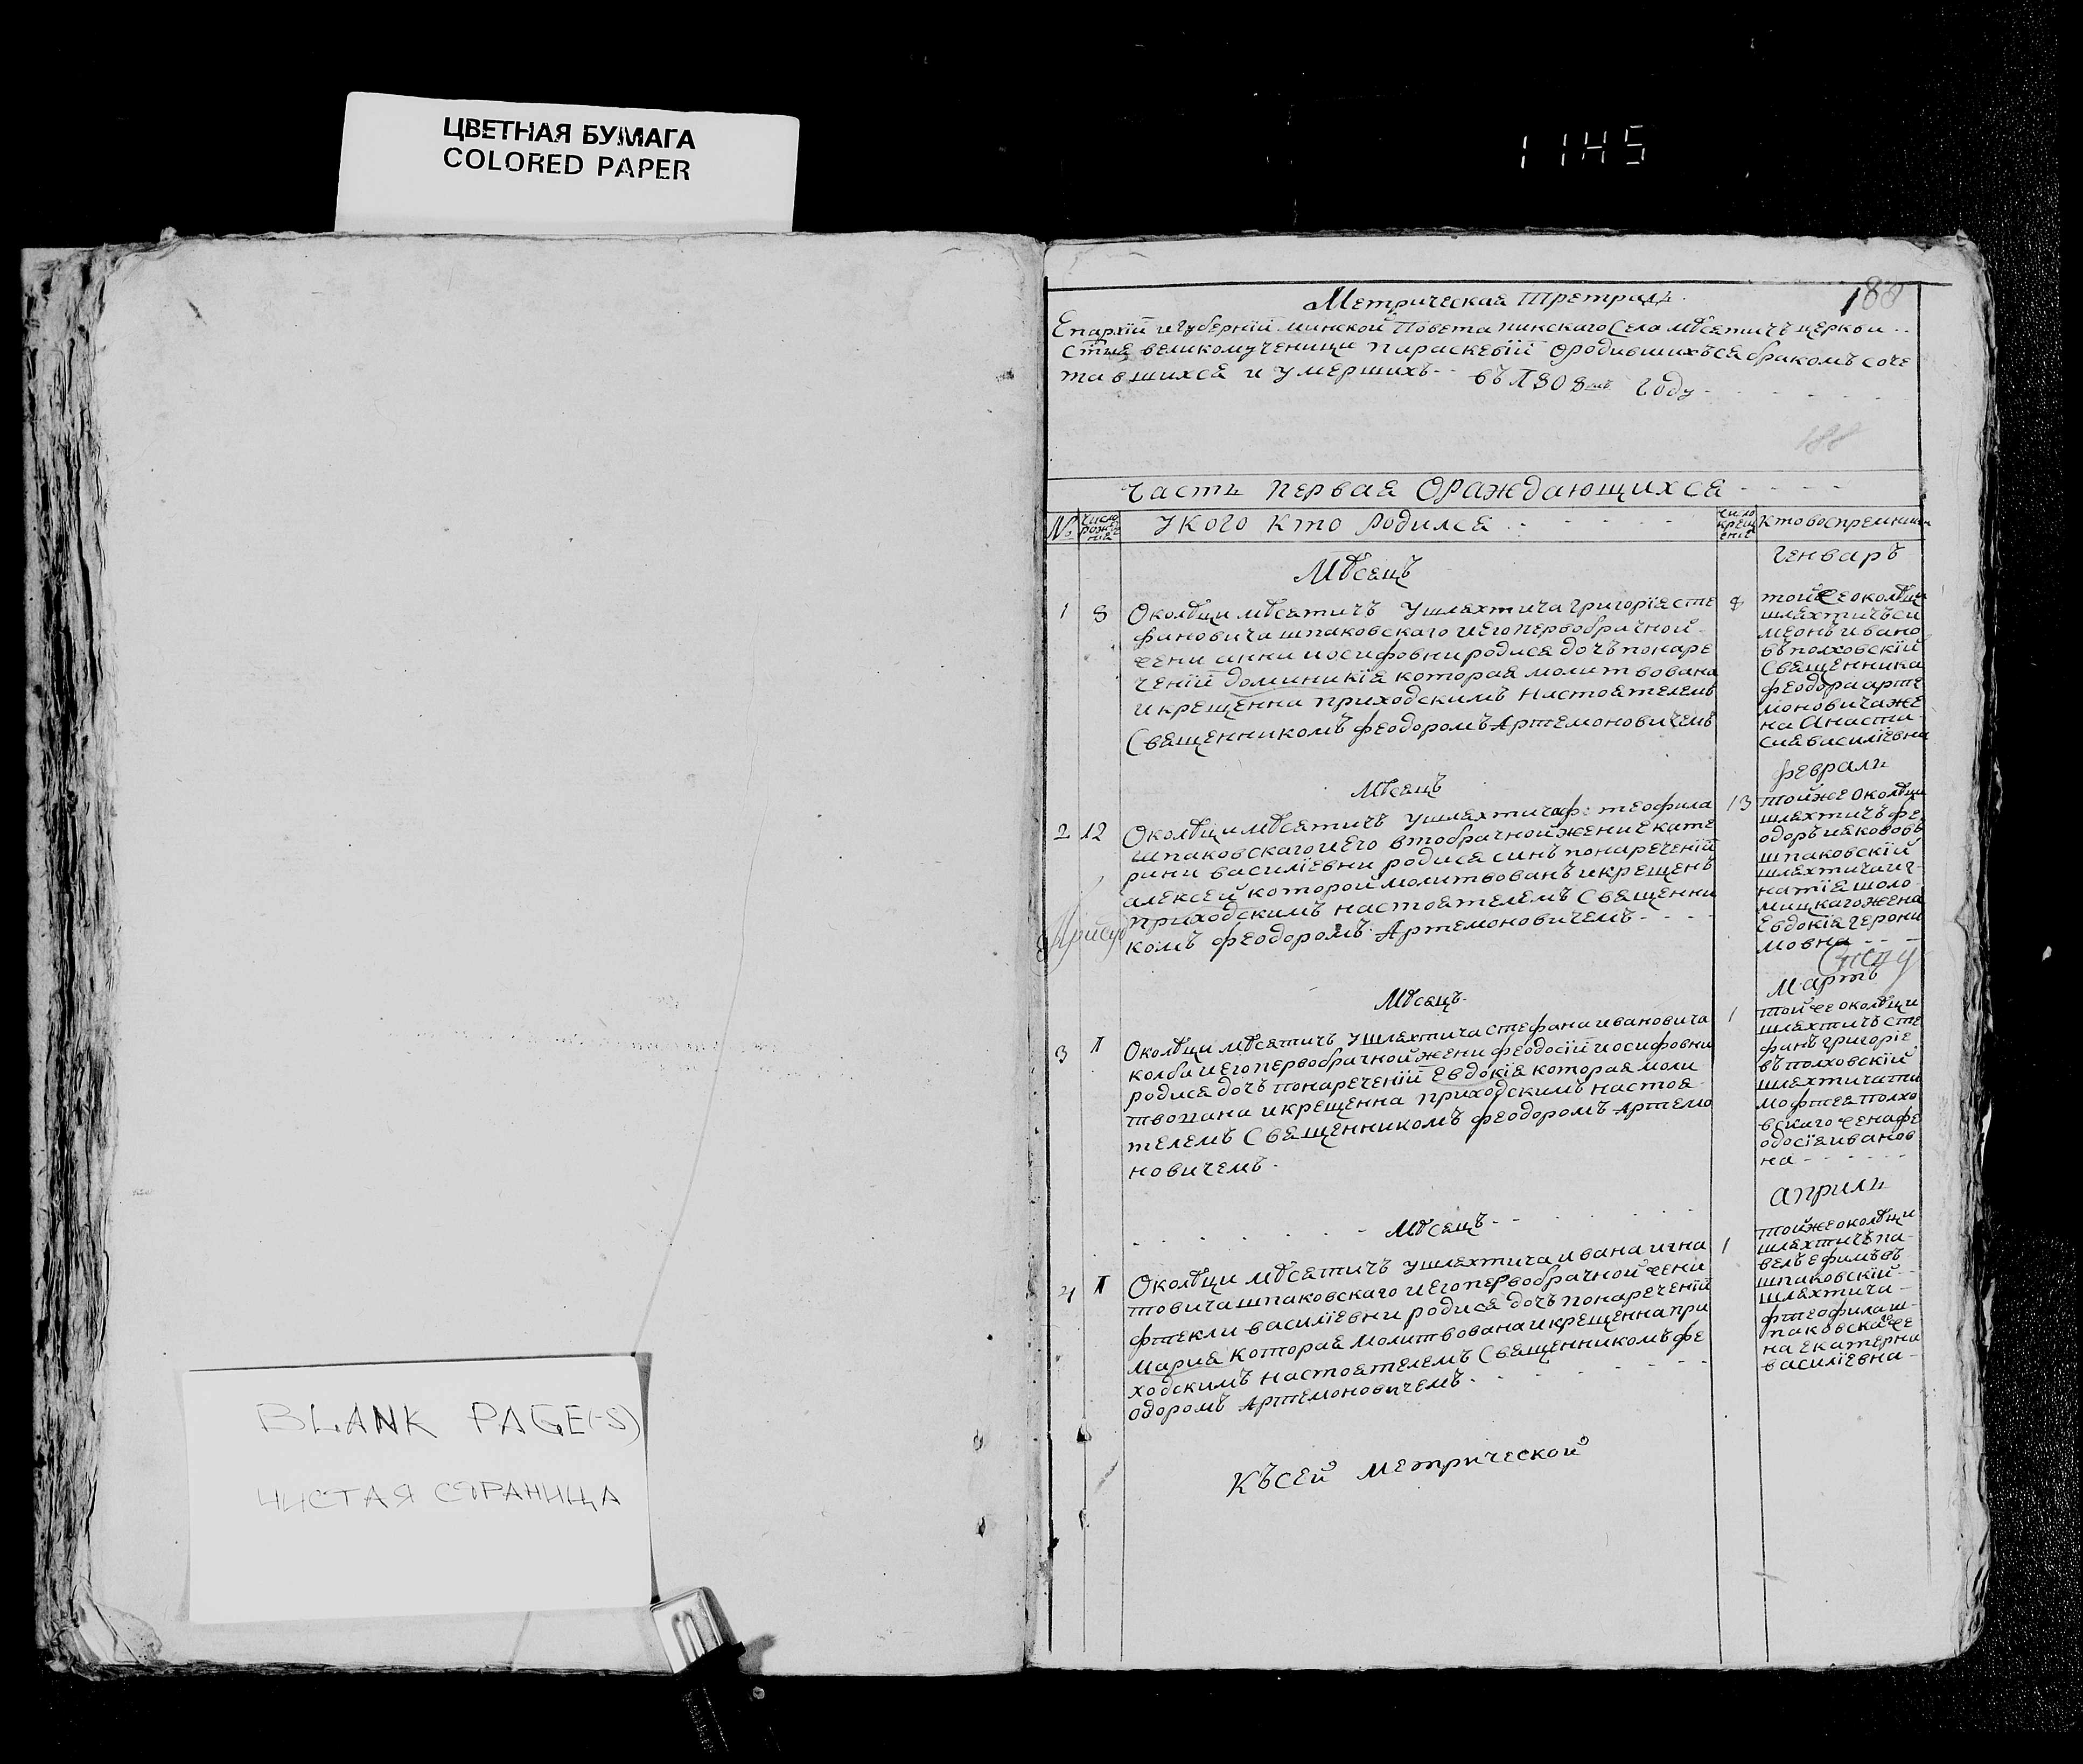 ЦВЕТНАЯ БУМАГА
COLORED PAPER
1145
BLANK PAGE(-S)
ЧИСТАЯ СТРАНИЦА
188
Метрическая Третрадь.
Епархїй и Губернїй минской Повета пинскаго Села мѣсятичъ церкви
стыя великомученици параскевїй ородившихъся бракомъ соче
тавшихся и умершихъ-- въ 1808мъ году
188
Часть первая Ораждающихся
№ число рожденїя Укого кто родился число крещенїе кто воспремники
Мѣсецъ Генваръ
1 8 Околѣци мѣсятичъ Ушляхтича григорїя сте 8
фановича шпаковскаго иего первобрачной
жени анни иосифовни родися дочъ понаре
ченїй доминикїя которая молитвована
и крещенна приходскимъ настоятелемъ
Священникомъ феодоромъ Артемоновичемъ
той же околѣци
шляхтичъ си
меонъ ивано
въ полховскїй
Священника
феодора арте
моновича же
на Анаста
сия василїевна
Мѣсецъ февраль
2 12 Околѣци Мѣсятичъ Ушляхтича ф: теофила 13
шпаковскаго иего втобрачной жени Екате
рини василїевни родися синъ понареченїй
алексей которой молитвованъ и крещенъ
приходскимъ настоятелемъ Священни
комъ феодоромъ Артемоновичемъ
той же околѣци
шляхтичъ фе
одоръ иякововъ
шпаковскїй
шляхтича иг
натїя шоло
мицкаго жена
Евдокїя герони
мовна
Мѣсецъ Мартъ
3 1 Околѣци мѣсятичъ Ушляхтича стефана ивановича 1
колби иего первобрачной жени феодосїй иосифовни
родися дочъ понареченїй Евдокїя которая моли
твована и крещенна приходскимъ настоя
телемъ Священникомъ феодоромъ Артемо
новичемъ.
той же околѣци
шляхтичъ сте
фанъ григорїе
въ полховскїй
шляхтича ти
мофтея полхо
вскаго жена фе
одосїя иванов
на
Мѣсецъ Априль
4 1 Околѣци мѣсятичъ Ушляхтича ивана игна 1
товича шпаковскаго иего первобрачной жени
фтекли василїевни родися дочъ понареченїй
Мария которая молитвована и крещенна при
ходскимъ настоятелемъ Священникомъ фе
одоромъ Артемоновичемъ.
той же околѣци
шляхтичъ па
велъ ефимовъ
шпаковскїй
шляхтича
фтеофила ш
паковска же
на екатерина
василїевна
Къ сей метрической